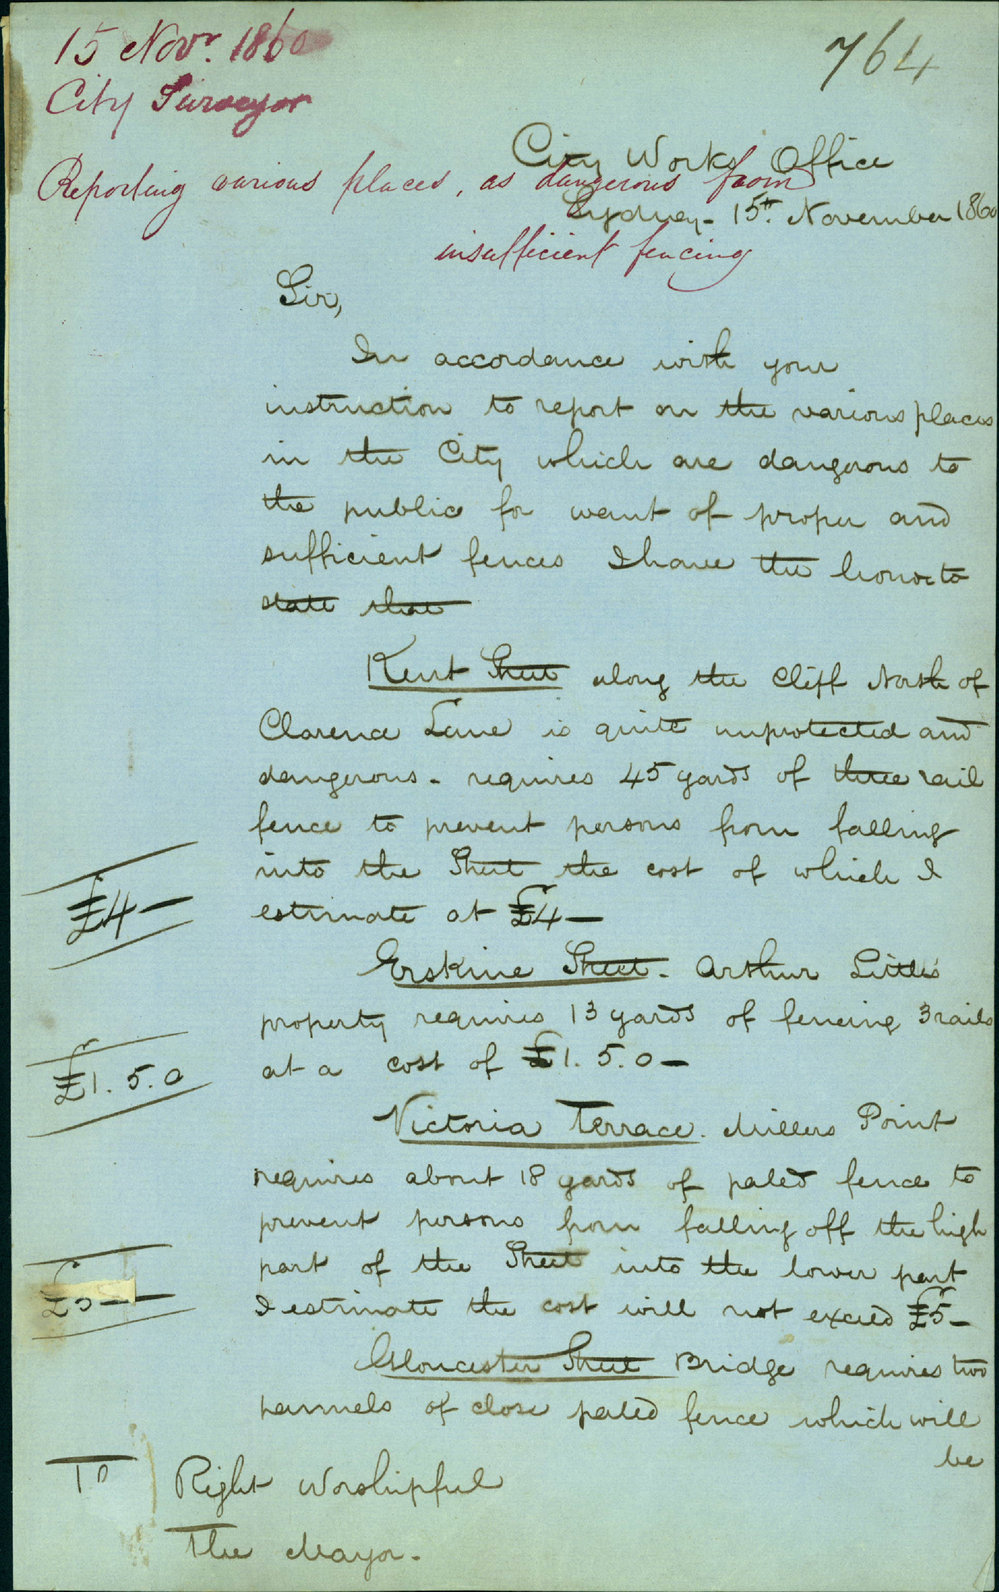 15 Novr. 1860
City Surveyor
764
Reporting various places, as dangerous from
insufficient fencing
City Works Office
Sydney - 15th November 1860
Sir,
In accordance with your
instruction to report on the various places
in the City which are dangerous to
the public for want of proper and
sufficient fences I have the honor to
state that
Kent Street along the Cliff North of
Clarence Lane is quite unprotected and
dangerous - requires 45 yards of three rail
fence to prevent persons from falling
into the Street the cost of which I
estimate at £4 —
£4 —
Erskine Street - Arthur Little's
property requires 13 yards of fencing 3 rails
at a cost of £1. 5. 0 —
£1. 5. 0
Victoria Terrace. Millers Point
requires about 18 yards of paled fence to
prevent persons from falling off the high
part of the Street into the lower part
I estimate the cost will not exceed £5 —
£5 —
Gloucester Street Bridge requires two
pannels of close paled fence which will
be
To
Right Worshipful
The Mayor.